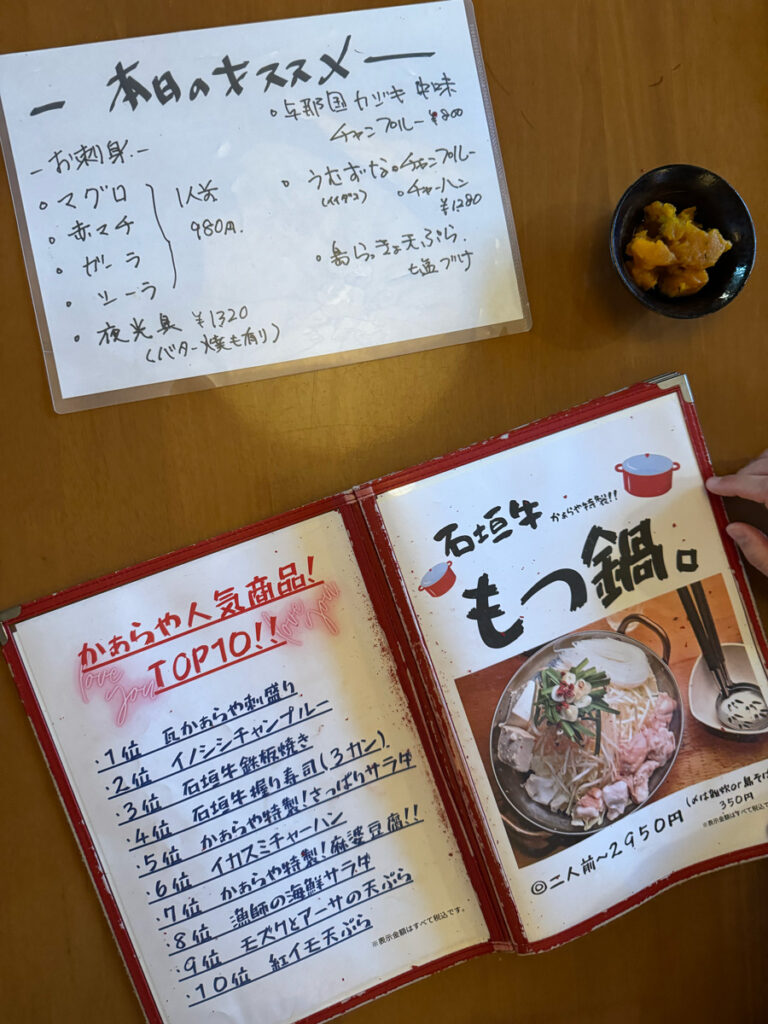 ー 本日のオススメ ー
ーお刺身ー
。マグロ
。赤マチ
。ガーラ
。ソーラ
1人前
980円.
。夜光貝 ¥1320
(バター焼も有り)
。与那国カジキ 中味
チャンプルー ¥800
。うむずなーのチャンプルー
(イイダコ)
。チャーハン
¥1280
。島らっきょ天ぷら.
も塩づけ
かぁらや人気商品!
TOP10!!
love you
love you
・1位 瓦かぁらや刺盛り
・2位 イノシシチャンプルー
・3位 石垣牛鉄板焼き
・4位 石垣牛握り寿司(3カン)
・5位 かぁらや特製!さっぱりサラダ
・6位 イカスミチャーハン
・7位 かぁらや特製!麻婆豆腐!!
・8位 漁師の海鮮サラダ
・9位 モズクとアーサの天ぷら
・10位 紅イモ天ぷら
※表示金額はすべて税込です。
石垣牛 かぁらや特製!!
もつ鍋。
(〆は雑炊or島そば
350円
◎二人前~2950円
※表示金額はすべて税込